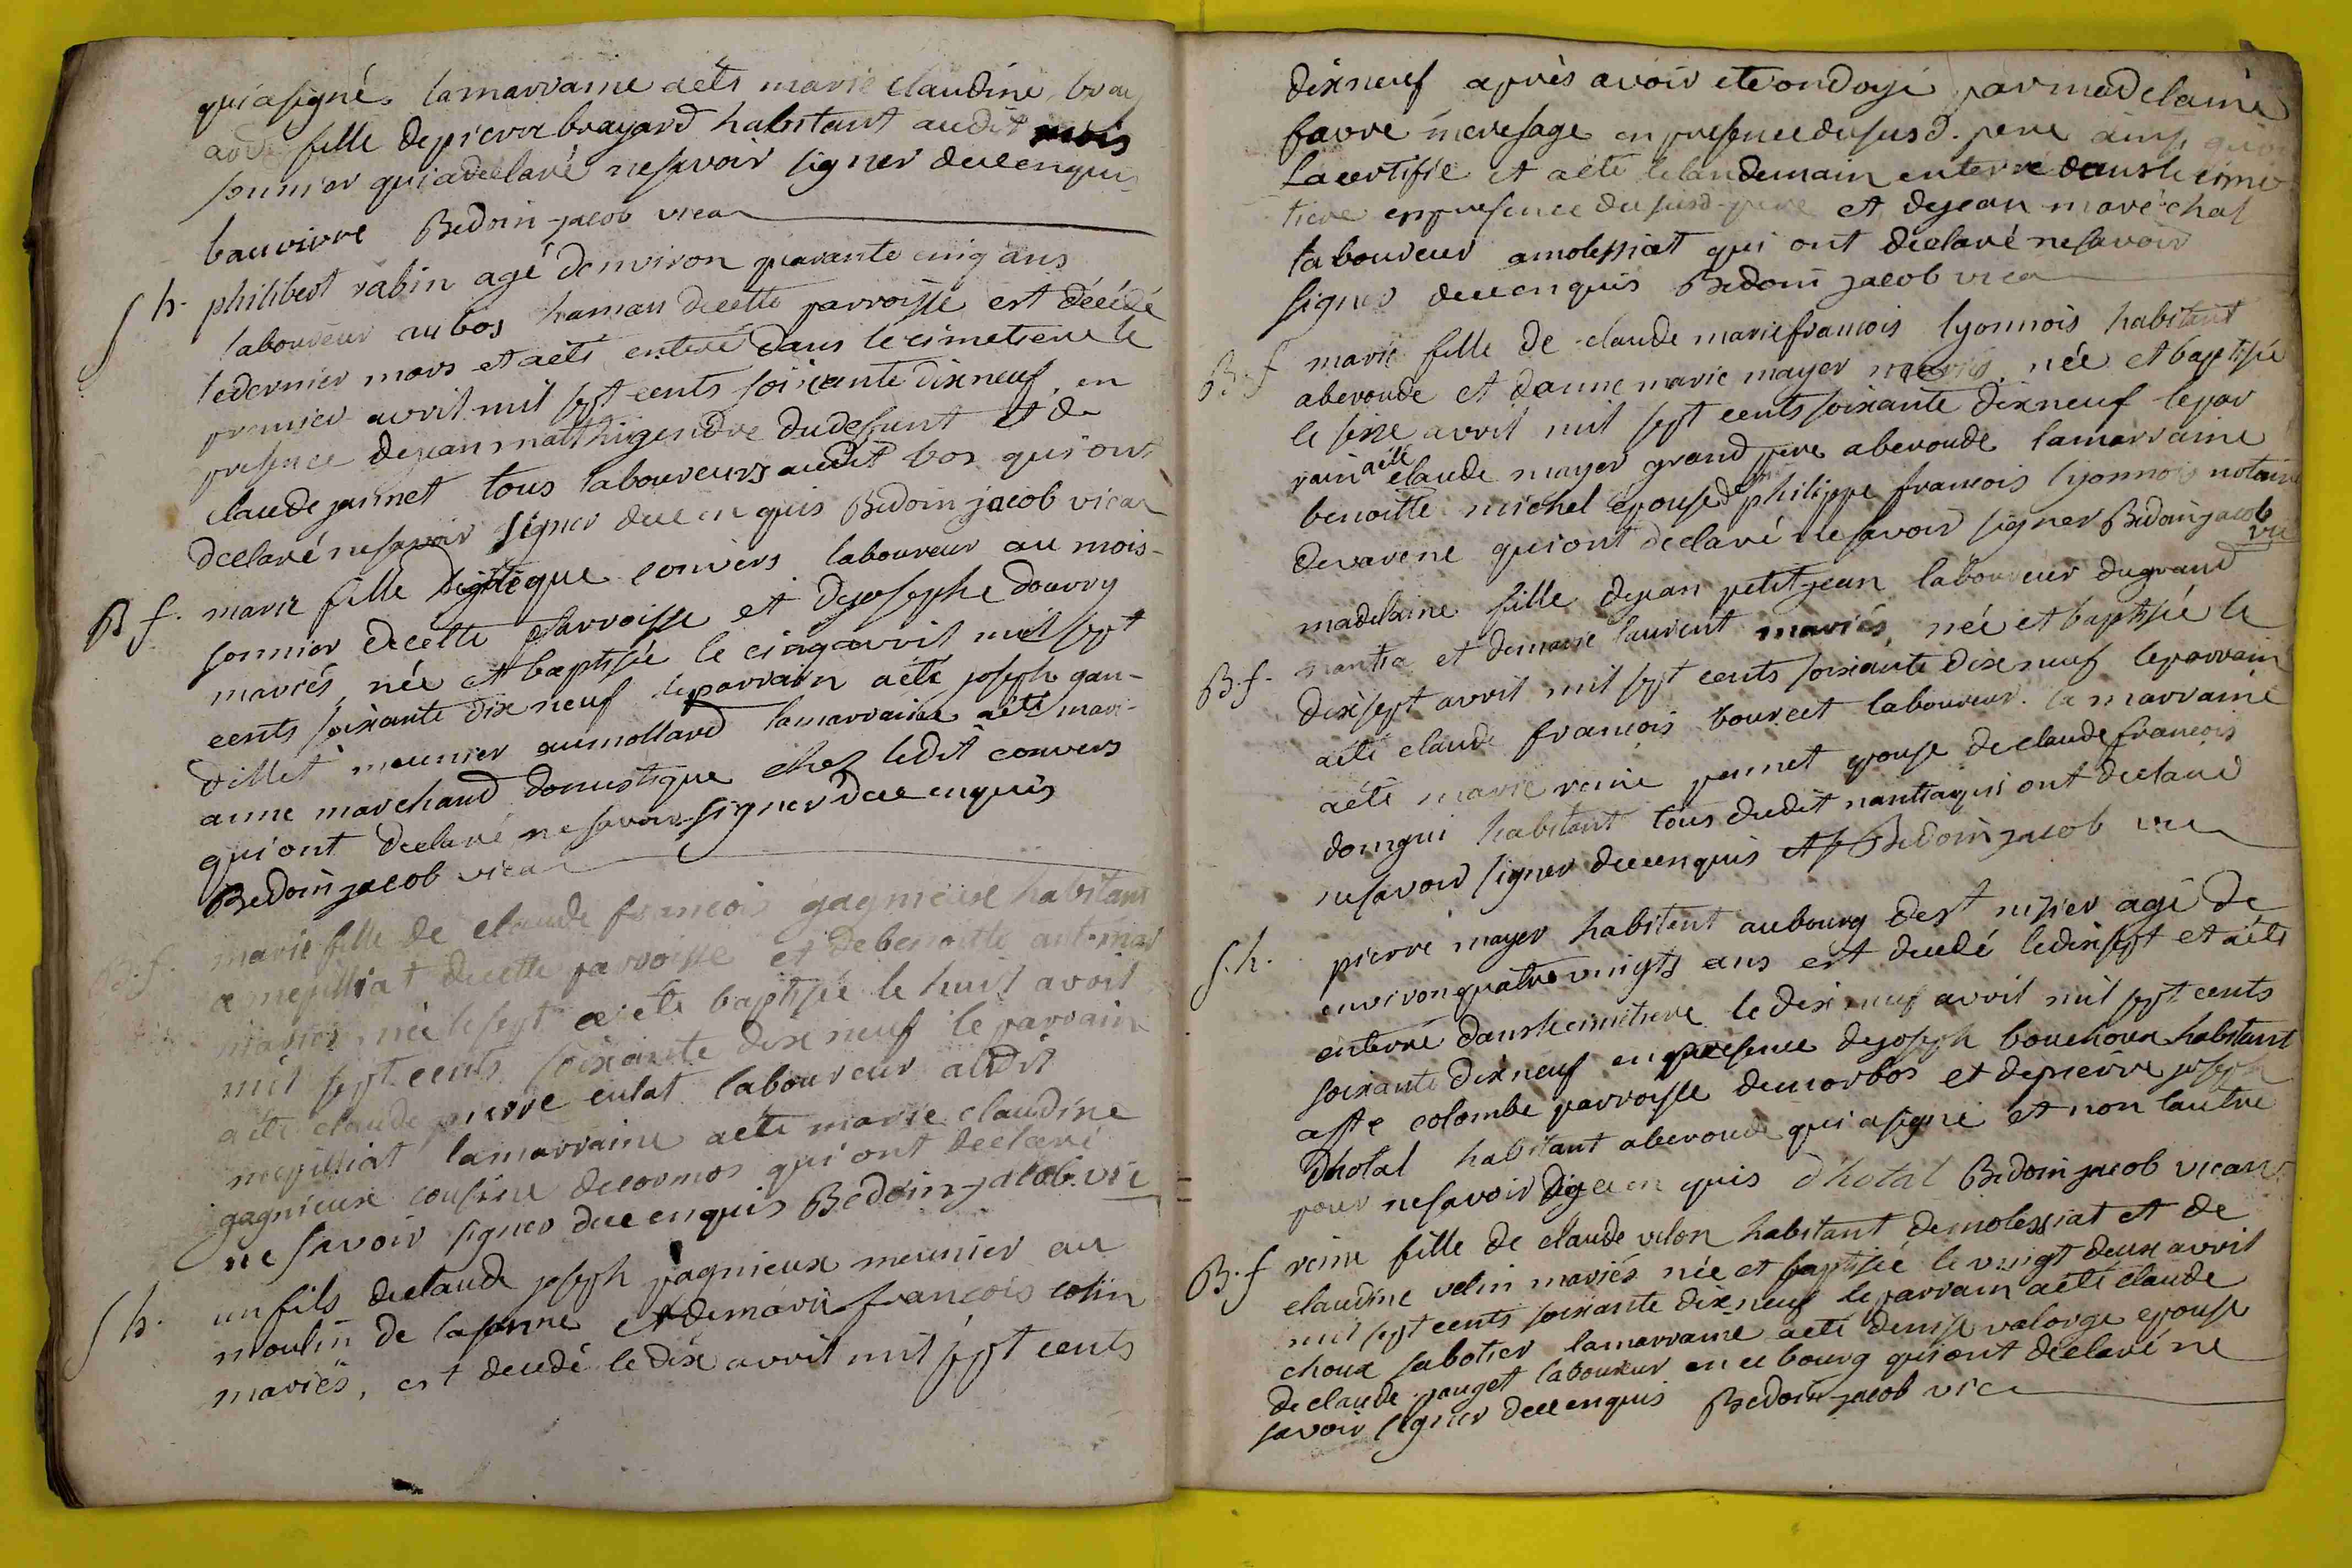 qui a signé. la marraine aeté marie claudine bray
ard fille de pierre brayard habitant audit mois
sonnier qui a declaré ne savoir signer de ce enquis
bauvivre Bedoin-jacob vica
S h. philibert rabin agé d'environ quarante cinq ans
laboureur au bos haman de cette parroisse est décédé
le dernier mars et aeté enterré dans le cimetiere le
premier avril mil sept cents soixante dix neuf, en
presence de jean mathi gendre du defunt et de
claude jannet tous laboureurs audit bos qui ont
declaré ne savoir signer de ce enquis Bedoin jacob vica
B f. marie fille convers laboureur au mois-
sonnier de cette parroisse et de josephe douvry
mariés, née et baptisée le cinq avril mil sept
cents soixante dix neuf le parrain aeté joseph gau-
dillet meunier au mollard la marraine aeté mari-
anne marchand domestique chez ledit convers
qui ont declaré ne savoir signer de ce enquis
Bedoin jacob vica
B. f. marie fille de claude francois gagnieux habitant
a mepilliat de cette parroisse et de benoitte
mariés, née le sept aeté baptisée le huit avril
mil sept cents soixante dix neuf le parrain
aeté claude pierre culat laboureur audit
mepilliat la marraine aeté marie claudine
gagnieux cousine de cormos qui ont declaré
ne savoir signer de ce enquis Bedoin-jacob vic
S h. un fils de claude joseph gagnieux meunier au
moulin de la sanne et de marie francois colin
mariés, est decedé le dix avril mil sept cents
dix neuf après avoir ete ondoyé par madelaine
favre mere sage en presence du susd. pere ainsi
la certifié et aeté le landemain enterré dans le cime
tiere en presence du susd-pere et de jean maréchal
laboureur a molessiat qui ont declaré ne savoir
signer de ce enquis Bedoin jacob vica
B. f marie fille de claude marie francois lyonnois habitant
a beroude et d'anne marie mayer mariés, née et baptisée
le seize avril mil sept cents soixante dix neuf le par
rain aeté claude mayer grand pere a beroude la marraine
benoitte michel epouse de philippe francois lyonnois notaire
de varene qui ont declaré ne savoir signer Bedoin jacob
vic
madelaine fille de jean petit-jean laboureur du grand
B. f. nantia et de marie laurent mariés, née et baptisée le
dix sept avril mil sept cents soixante dix neuf le parrain
aeté claude francois bourcet laboureur. la marraine
aeté marie reine pennet epouse de claude francois
domgui habitant tous dudit nantia qui ont declaré
ne savoir signer de ce enquis Bedoin jacob vica
S. h. pierre mayer habitant au bourg de st nisier agé de
environ quatre vingts ans est decedé le dix sept et aeté
enterré dans le cimetiere le dix neuf avril mil sept cents
soixante dix neuf en presence de joseph bouchoux habitant
a ste colombe parroisse de morbos et de pierre joseph
dhotal habitant a beroude qui a signé et non lautre
pour ne savoir de ce enquis dhotal Bedoin jacob vicair
B. f reine fille de claude velon habitant de molessiat et de
claudine velin mariés née et baptisée le vingt deux avril
mil sept cents soixante dix neuf le parrain aeté claude
choux sabotier la marraine aeté denise valorge epouse
de claude pauget laboureur en ce bourg qui ont declaré ne
savoir signer de ce enquis Bedoin-jacob vica